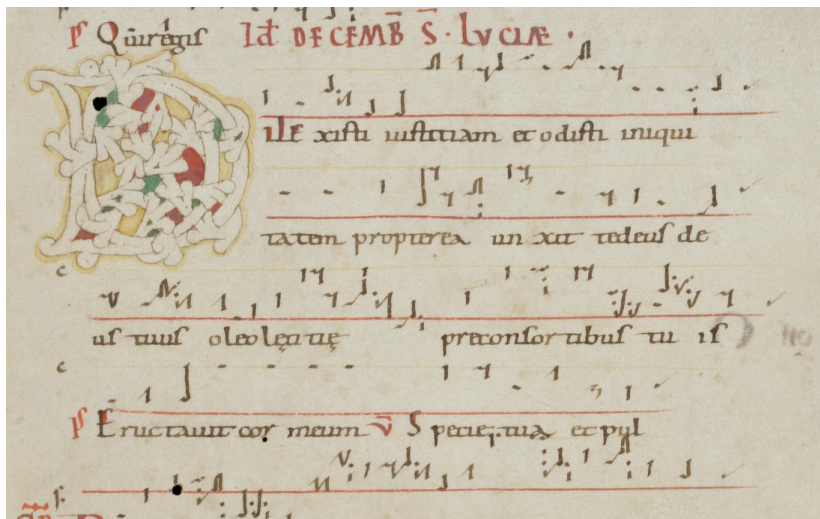 Ps Qui regis Id DECEMB S · LVCIAE ·
DILExisti iustitiam et odisti iniqui
tatem propterea unxit te deus de
us tuus oleo lętitię pre consortibus tuis
c
c
Ps Eructauit cor meum V Specie tua et pul